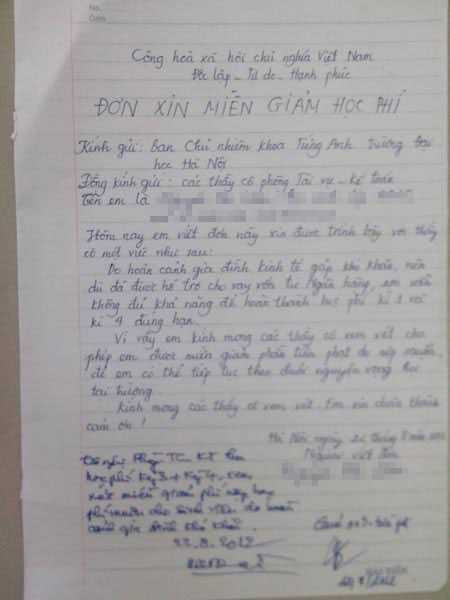 No.
Date
Cộng hoà xã hội chủ nghĩa Việt Nam
Độc lập - Tự do - Hạnh phúc
ĐƠN XIN MIỄN GIẢM HỌC PHÍ
Kính gửi: Ban Chủ nhiệm khoa Tiếng Anh trường Đại
học Hà Nội
Đồng kính gửi: các thầy cô phòng Tài vụ - Kế toán
Tên em là
Hôm nay em viết đơn này xin được trình bày với thầy
cô một việc như sau:
Do hoàn cảnh gia đình kinh tế gặp khó khăn, nên
dù đã được hỗ trợ cho vay vốn từ ngân hàng, em vẫn
không đủ khả năng để hoàn thành học phí kì 3 và
kì 4 đúng hạn.
Vì vậy em kính mong các thầy cô xem xét cho
phép em được miễn giảm phần tiền phạt do nộp muộn,
để em có thể tiếp tục theo đuổi nguyện vọng học
tại trường.
Kính mong các thầy cô xem xét. Em xin chân thành
cảm ơn!
Hà Nội, ngày tháng 8 năm
Người viết đơn
Đề nghị Phòng TC KT
học phí Kỳ 3 + Kỳ 4, xem
xét miễn giảm phí nộp
phí muộn cho sinh viên do hoàn
cảnh gia đình khó khăn.
22.8.2012